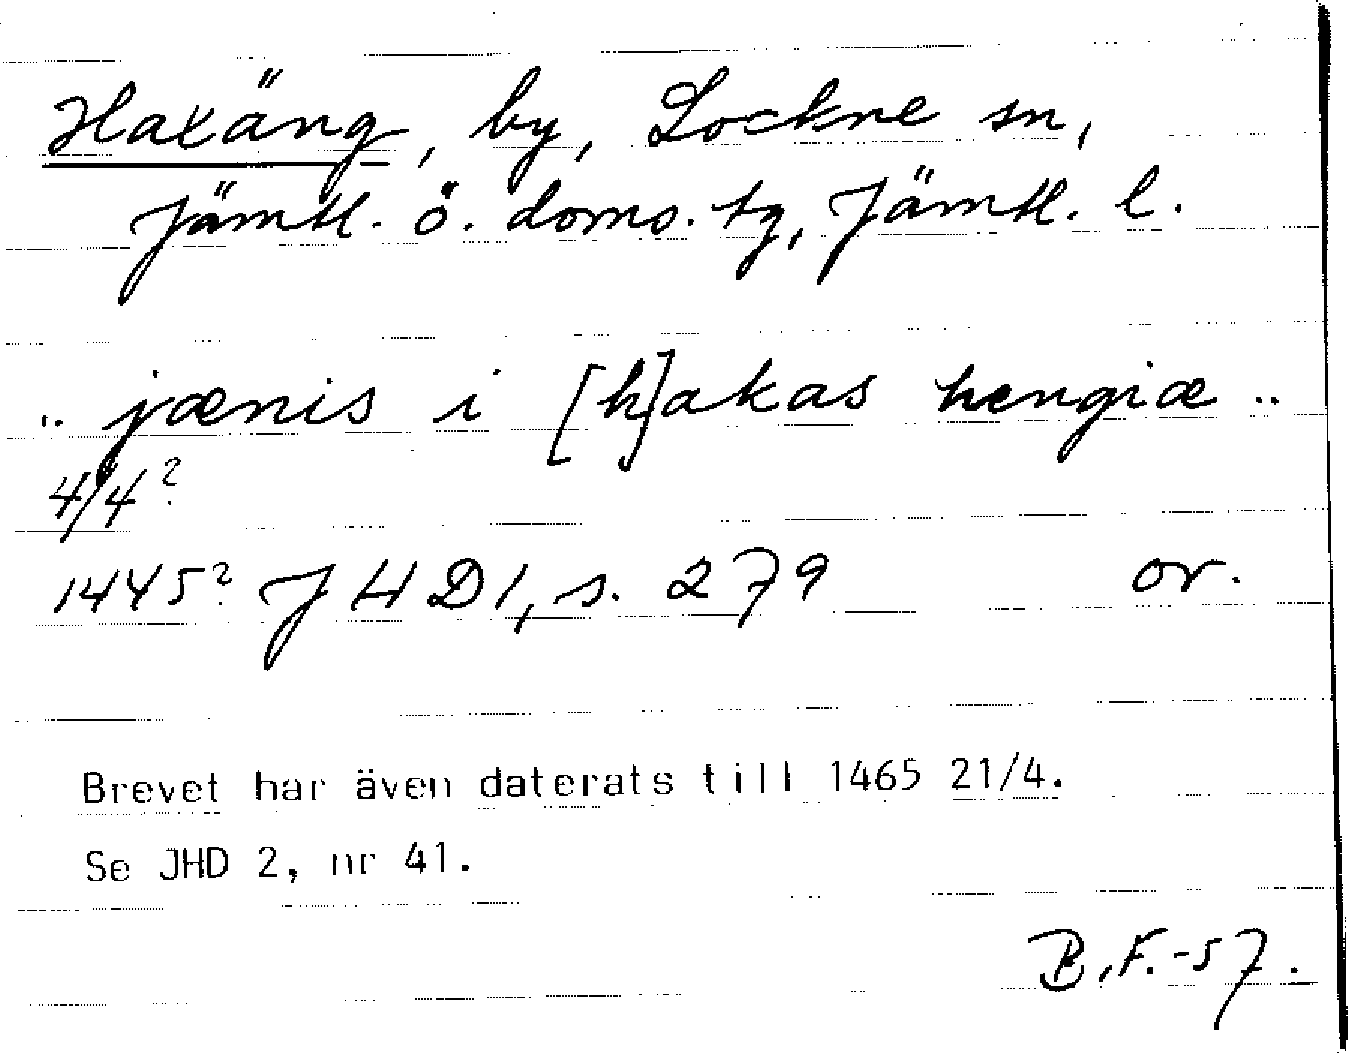 Haxäng, by, Lockne sn,
Jämtl. ö. doms. tg, Jämtl. l.
.. jænis i [h]akas hengiæ ..
4/4?
1445? JHD 1, s. 279 or.
Brevet har även daterats till 1465 21/4.
Se JHD 2, nr 41.
B.F.-57.